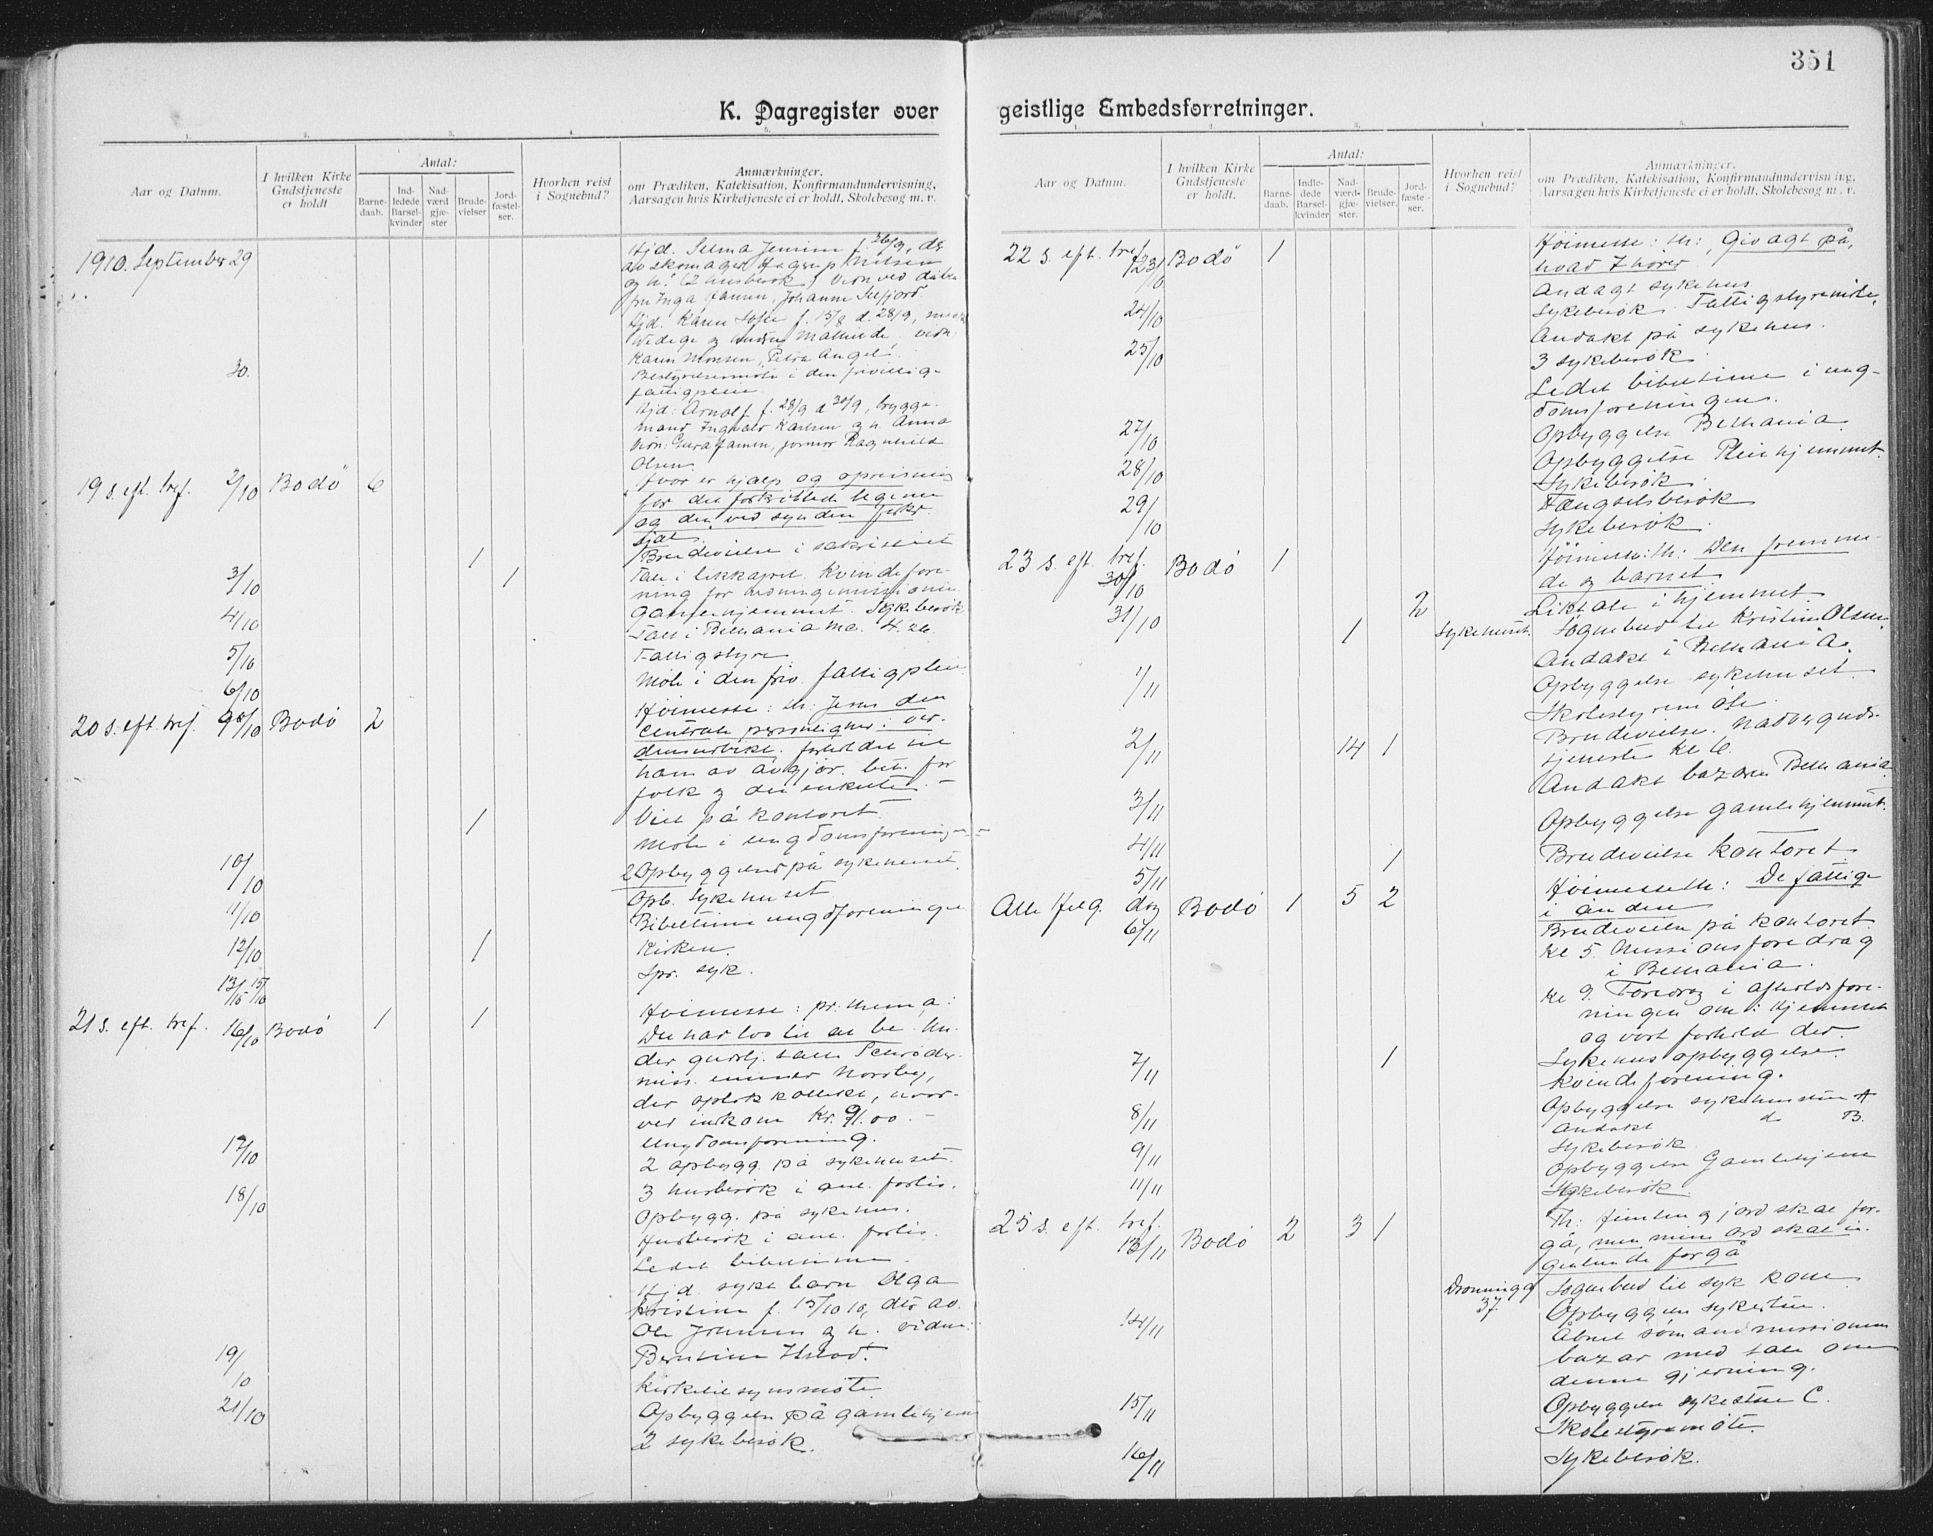 351
K. Dagregister over
geistlige Embedsforretninger.
1. 2. 3. 4. 5.
Aar og Datum.
I hvilken Kirke Gudstjeneste er holdt
Antal:
Barnedaab.
Indledede Barselkvinder
Nadværdgjæster
Brudevielser
Jordfæstelser.
Hvorhen reist i Sognebud?
Anmærkninger.
om Prædiken, Katekisation, Konfirmandundervisning,
Aarsagen hvis Kirketjeneste ei er holdt, Skolebesøg m. v.
1910. September 29
Hjd. Selma f. 26/9, dr
av skomager Hagerup Nilsen
og h. (2 husbesök) Vidn ved dåben
fru Inga Jansen, Johanne
Hjd. Karen Sofie f. 15/8 d. 28/9,
og hustru vidn.
Karen Monsen, Petra Angel.
30.
Bestyrelsesmöte i den frivillige
fattigpleie
Hjd: Arnolf f. 28/9 d 30/9, brygge-
mand Ingvald Karlsen og h. Anna
Ragnhild
Olsen
19 s. eft. tref. 2/10 Bodö 6
Hvor er hjælp og opreisning
for det legeme
og den ved synden
sjæl.
1 Brudevielse i sakristiet
3/10 1 Tale i likkapel. Kvindefore-
ning for hedningemissionen
4/10 Gamlehjemmet. Sykebesök
Tale i Bethania
5/10 Fattigstyre
6/10 Möte i den friv. fattigpleie
20 s. eft. tref. 9/10 Bodö 2
Höimesse: th: Jesus den
centrale personlighet i ver-
densverket. forholdet til
ham av avgjör. bet. for
folk og den enkelte. -
1 Viel på kontoret
Möte i ungdomsforeningen
10/10 2 Opbyggelser på sykehuset.
11/10 Opb. Sykehuset
Bibeltime ungdforeningen
12/10 1 Kirken.
13/10 15/10 Spr. syk.
21 s. eft. tref. 16/10 Bodö 1 1
Höimesse: pr. thema:
Du har lov til at be. Un-
der gudstj. tale Schröder
miss. emissær Norsby,
der optok kollekt, hvor-
ved indkom Kr. 91.00. -
Ungdomsforening.
17/10 2 opbygg. på sykehuset.
3 husbesök i anl. forlis.
18/10 Opbygg. på sykehus.
Husbesök i anl. forlis.
Ledet bibeltimen
Hjd. sykt barn Olga
Kristine f. 15/10 10, dtr av
Ole Johnsen og h. vidne:
Berntine
19/10 Kirketilsynsmöte
21/10 Opbyggelse på gamlehjem
2 sykebesök.
1. 2. 3. 4. 5.
Aar og Datum.
I hvilken Kirke Gudstjeneste er holdt.
Antal:
Barnedaab.
Indledede Barselkvinder
Nadværdgjæster.
Brudevielser.
Jordfæstelser.
Hvorhen reist i Sognebud?
Anmærkninger.
om Prædiken, Katekisation, Konfirmandundervisning,
Aarsagen hvis Kirketjeneste ei er holdt, Skolebesøg m. v.
22 s. eft. tref. 23/10 Bodö 1
Höimesse: th: Giv agt på,
hvad I hører
Andagt sykehus
24/10 Sykebesök. Fattigstyremöte.
Andakt på sykehus.
25/10 3 sykebesök
Ledet bibeltime i ung-
domsforeningen.
27/10 Opbyggelse Bethania
Opbyggelse Pleiehjemmet.
28/10 Sykebesök
Fængselsbesök
29/10 Sykebesök.
23 s. eft. tref. 30/10 Bodö 1
Höimesse: th: Den fremme-
de og barnet
2 Liktale i hjemmet
31/10 1 Sykehuset. Sognebud til Kristine Olsen.
Andakt i Bethania.
1/11 Opbyggelse sykehuset.
Skolestyremöte
2/11 14 1 Brudevielse. Nadvergud-
tjeneste kl 6.
Andakt bazaren Bethania
3/11
Opbyggelse Gamlehjemmet.
4/11
5/11 1 Brudevielse kontoret
Alle helg. dag 6/11 Bodö 1 5 2
Höimesse th: De fattige
i ånden
Brudevielse på kontoret
kl 5. Missionsforedrag
i Bethania.
kl 9. Foredrag i afholdsfore-
ningen om: Hjemmet
og vort forhold der.
7/11 1 Sykehus opbyggelse
Kvindeforening.
8/11 Opbyggelse sykehusstuen A
Andakt do B.
9/11 Sykebesök
Opbyggelse Gamlehjem
11/11 Sykebesök
25 s. eft. tref. 13/11 Bodö 2 3 1
Th: Himlen og jord skal for-
gå, men mine ord skal in-
genlunde forgå
Dronningg 37. Sognebud til syk kone
Opbyggelse sykestue.
14/11 Åbnet sömandsmissionens
bazar med tale om
denne gjerning.
15/11 Opbyggelse sykestue C.
Skolestyremöte.
16/11 Sykebesök.